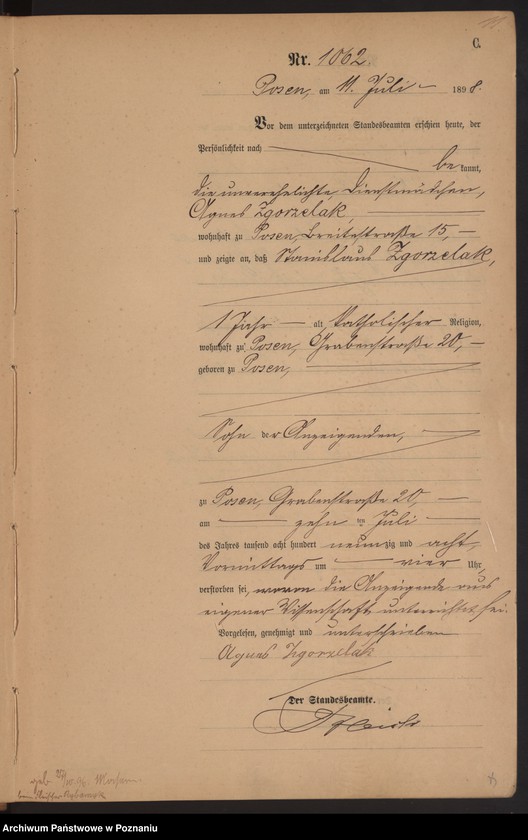 C.
Nr. 1062.
Posen, am 11. Juli 1898.
Vor dem unterzeichneten Standesbeamten erschien heute, der
Persönlichkeit nach
bekannt,
die unverehelichte Dienstmädchen,
Agnes Zgorzelak,
wohnhaft zu Posen, Breitestraße 15,
und zeigte an, daß Stanislaus Zgorzelak,
1 Jahr alt, katholischer Religion,
wohnhaft zu Posen, Grabenstraße 20,
geboren zu Posen,
Sohn der Anzeigenden,
zu Posen, Grabenstraße 20,
am zehn ten Juli
des Jahres tausend acht hundert neunzig und acht,
Vormittags um vier Uhr
verstorben sei, wovon die Anzeigende aus
eigener Wissenschaft unterrichtet sei.
Vorgelesen, genehmigt und unterschrieben
Agnes Zgorzelak
Der Standesbeamte.
geb
Archiwum Państwowe w Poznaniu